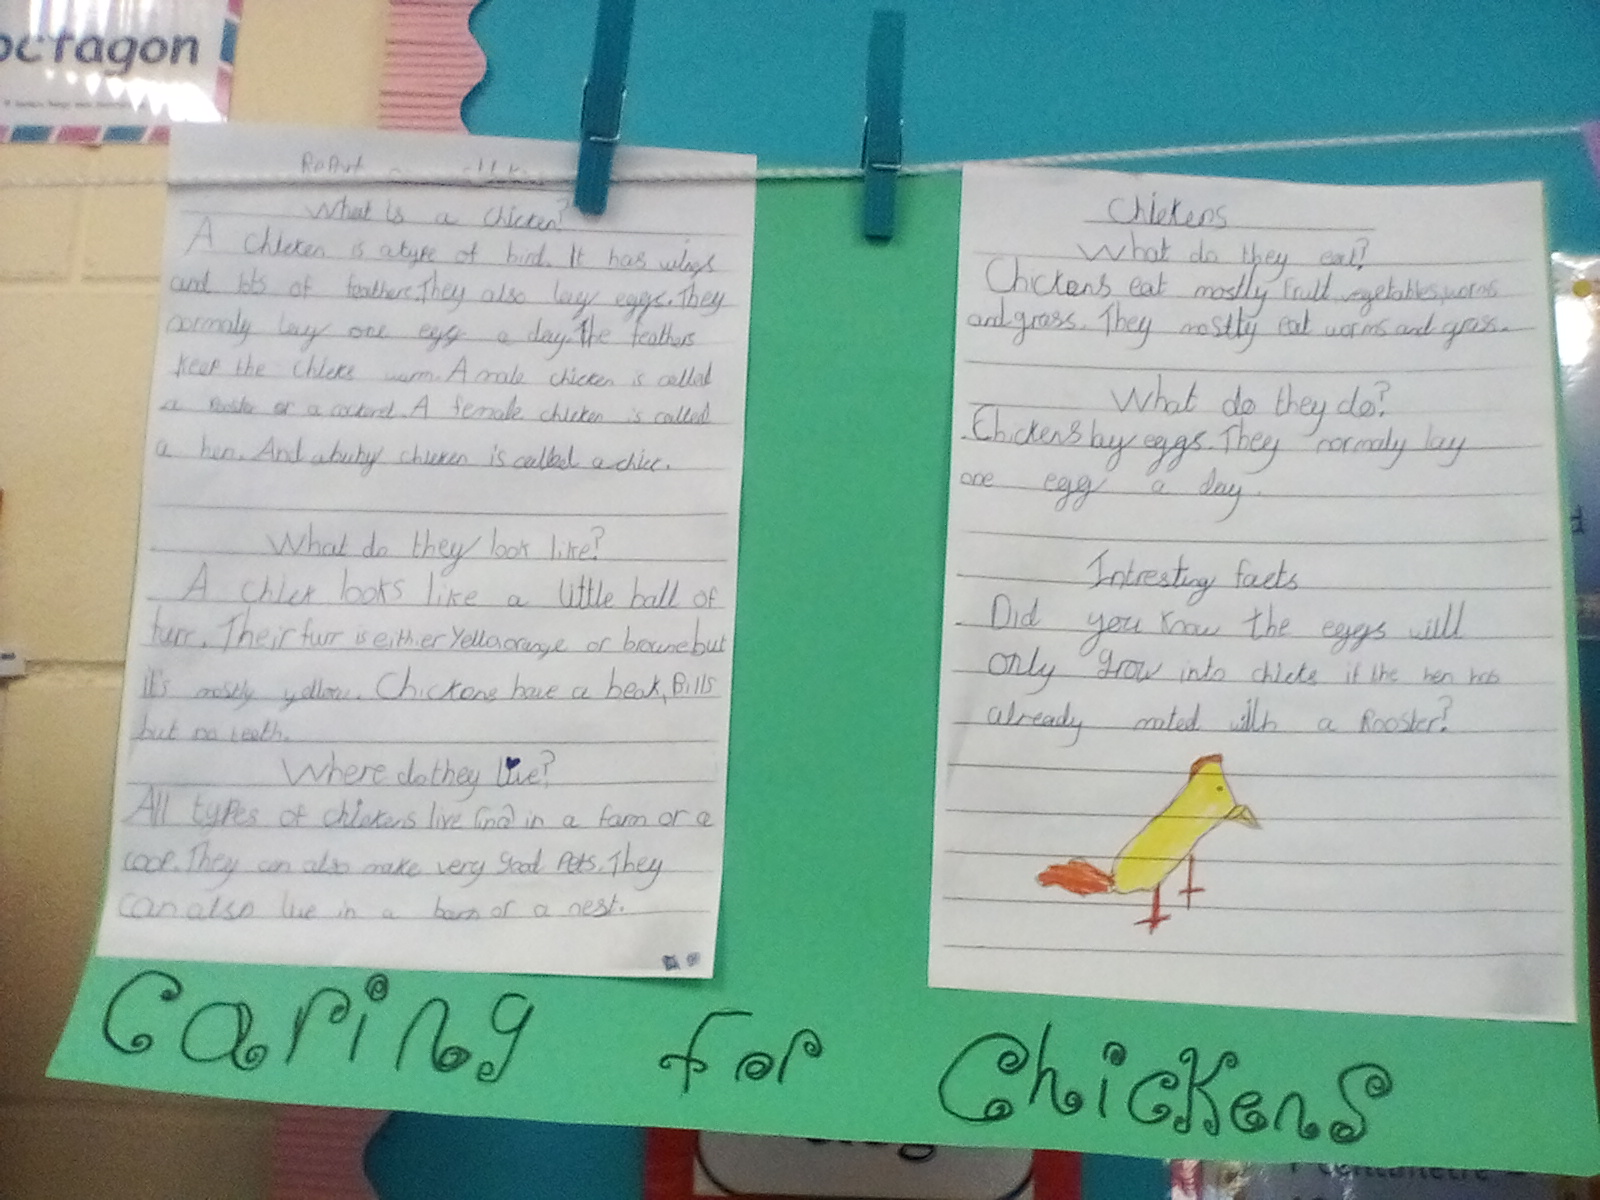 octagon
Report
What is a chicken?
A chicken is a type of bird. It has wings
and lots of feathers. They also lay eggs. They
normaly lay one egg a day. The feathers
keep the chicks warm. A male chicken is called
a Rooster or a cockerel. A female chicken is called
a hen. And a baby chicken is called a chic.
What do they look like?
A chick looks like a little ball of
furr. Their furr is either Yellow orange or browne but
it's mostly yellow. Chickens have a beak, Bills
but no teeth.
Where do they live?
All types of chickens live in a farm or a
coop. They can also make very good Pets. They
can also live in a barn or a nest.
Chickens
What do they eat?
Chickens eat mostly fruit vegetables, worms
and grass. They mostly eat worms and grass.
What do they do?
Chickens lay eggs. They normaly lay
one egg a day.
Intresting facts
Did you know the eggs will
only grow into chicks if the hen has
already mated with a Rooster?
Caring For Chickens